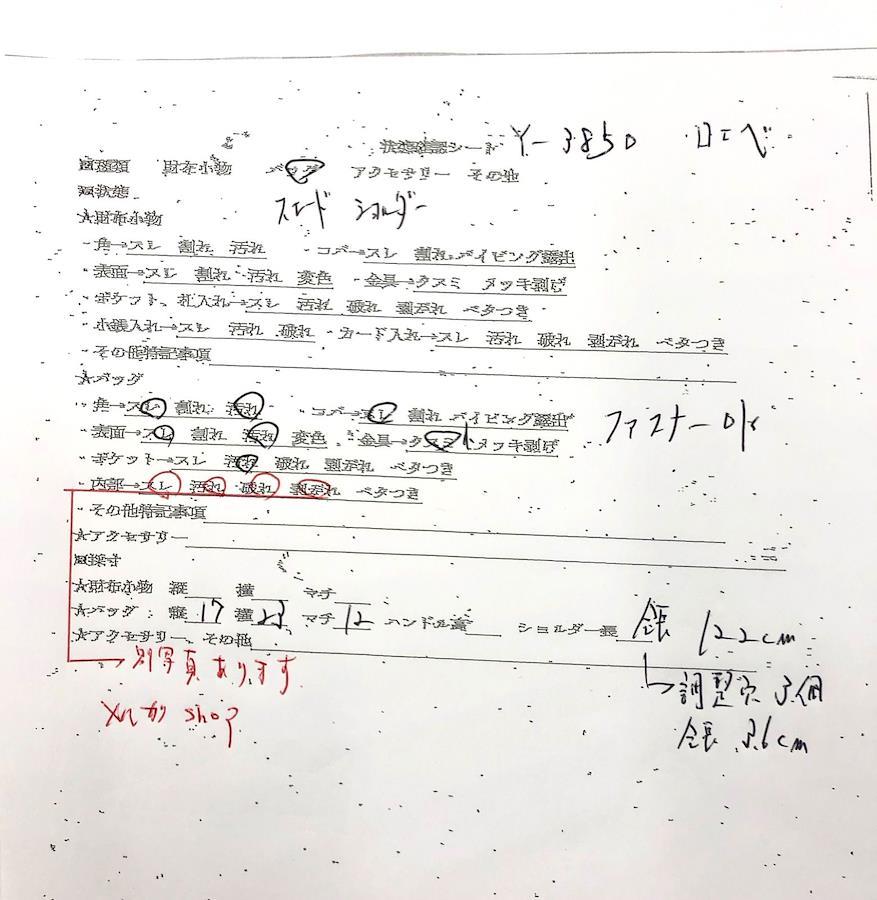 状態確認シート Y-3850 ロエベ
■種類 財布小物 バッグ アクセサリー その他
■状態 スエード ショルダー
★財布小物
・角→スレ 割れ 汚れ ・コバ→スレ 割れ パイピング露出
・表面→スレ 割れ 汚れ 変色 ・金具→クスミ メッキ剥げ
・ポケット、札入れ→スレ 汚れ 破れ 剥がれ ベタつき
・小銭入れ→スレ 汚れ 破れ ・カード入れ→スレ 汚れ 破れ 剥がれ ベタつき
・その他特記事項
★バッグ
・角→スレ 割れ 汚れ ・コバ→スレ 割れ パイピング露出
・表面→スレ 割れ 汚れ 変色 ・金具→クスミ メッキ剥げ ファスナーOK
・ポケット→スレ 汚れ 破れ 剥がれ ベタつき
・内部→スレ 汚れ 破れ 剥がれ ベタつき
・その他特記事項
★アクセサリー
■採寸
★財布小物 縦 横 マチ
★バッグ: 縦 17 横 23 マチ 12 ハンドル高 ショルダー長 全長 122cm
★アクセサリー、その他
→別写真あります 調整穴 3個
メルカリ shop 全長 36cm